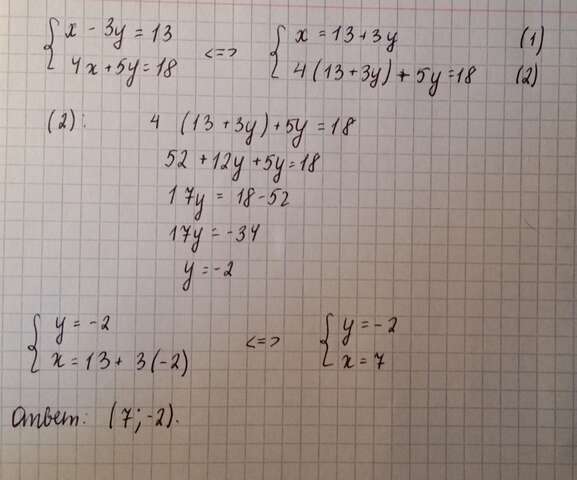 { x - 3y = 13 <=> { x = 13 + 3y (1)
{ 4x + 5y = 18 { 4(13 + 3y) + 5y = 18 (2)
(2): 4 (13 + 3y) + 5y = 18
52 + 12y + 5y = 18
17y = 18 - 52
17y = -34
y = -2
{ y = -2 <=> { y = -2
{ x = 13 + 3(-2) { x = 7
Ответ: (7; -2).